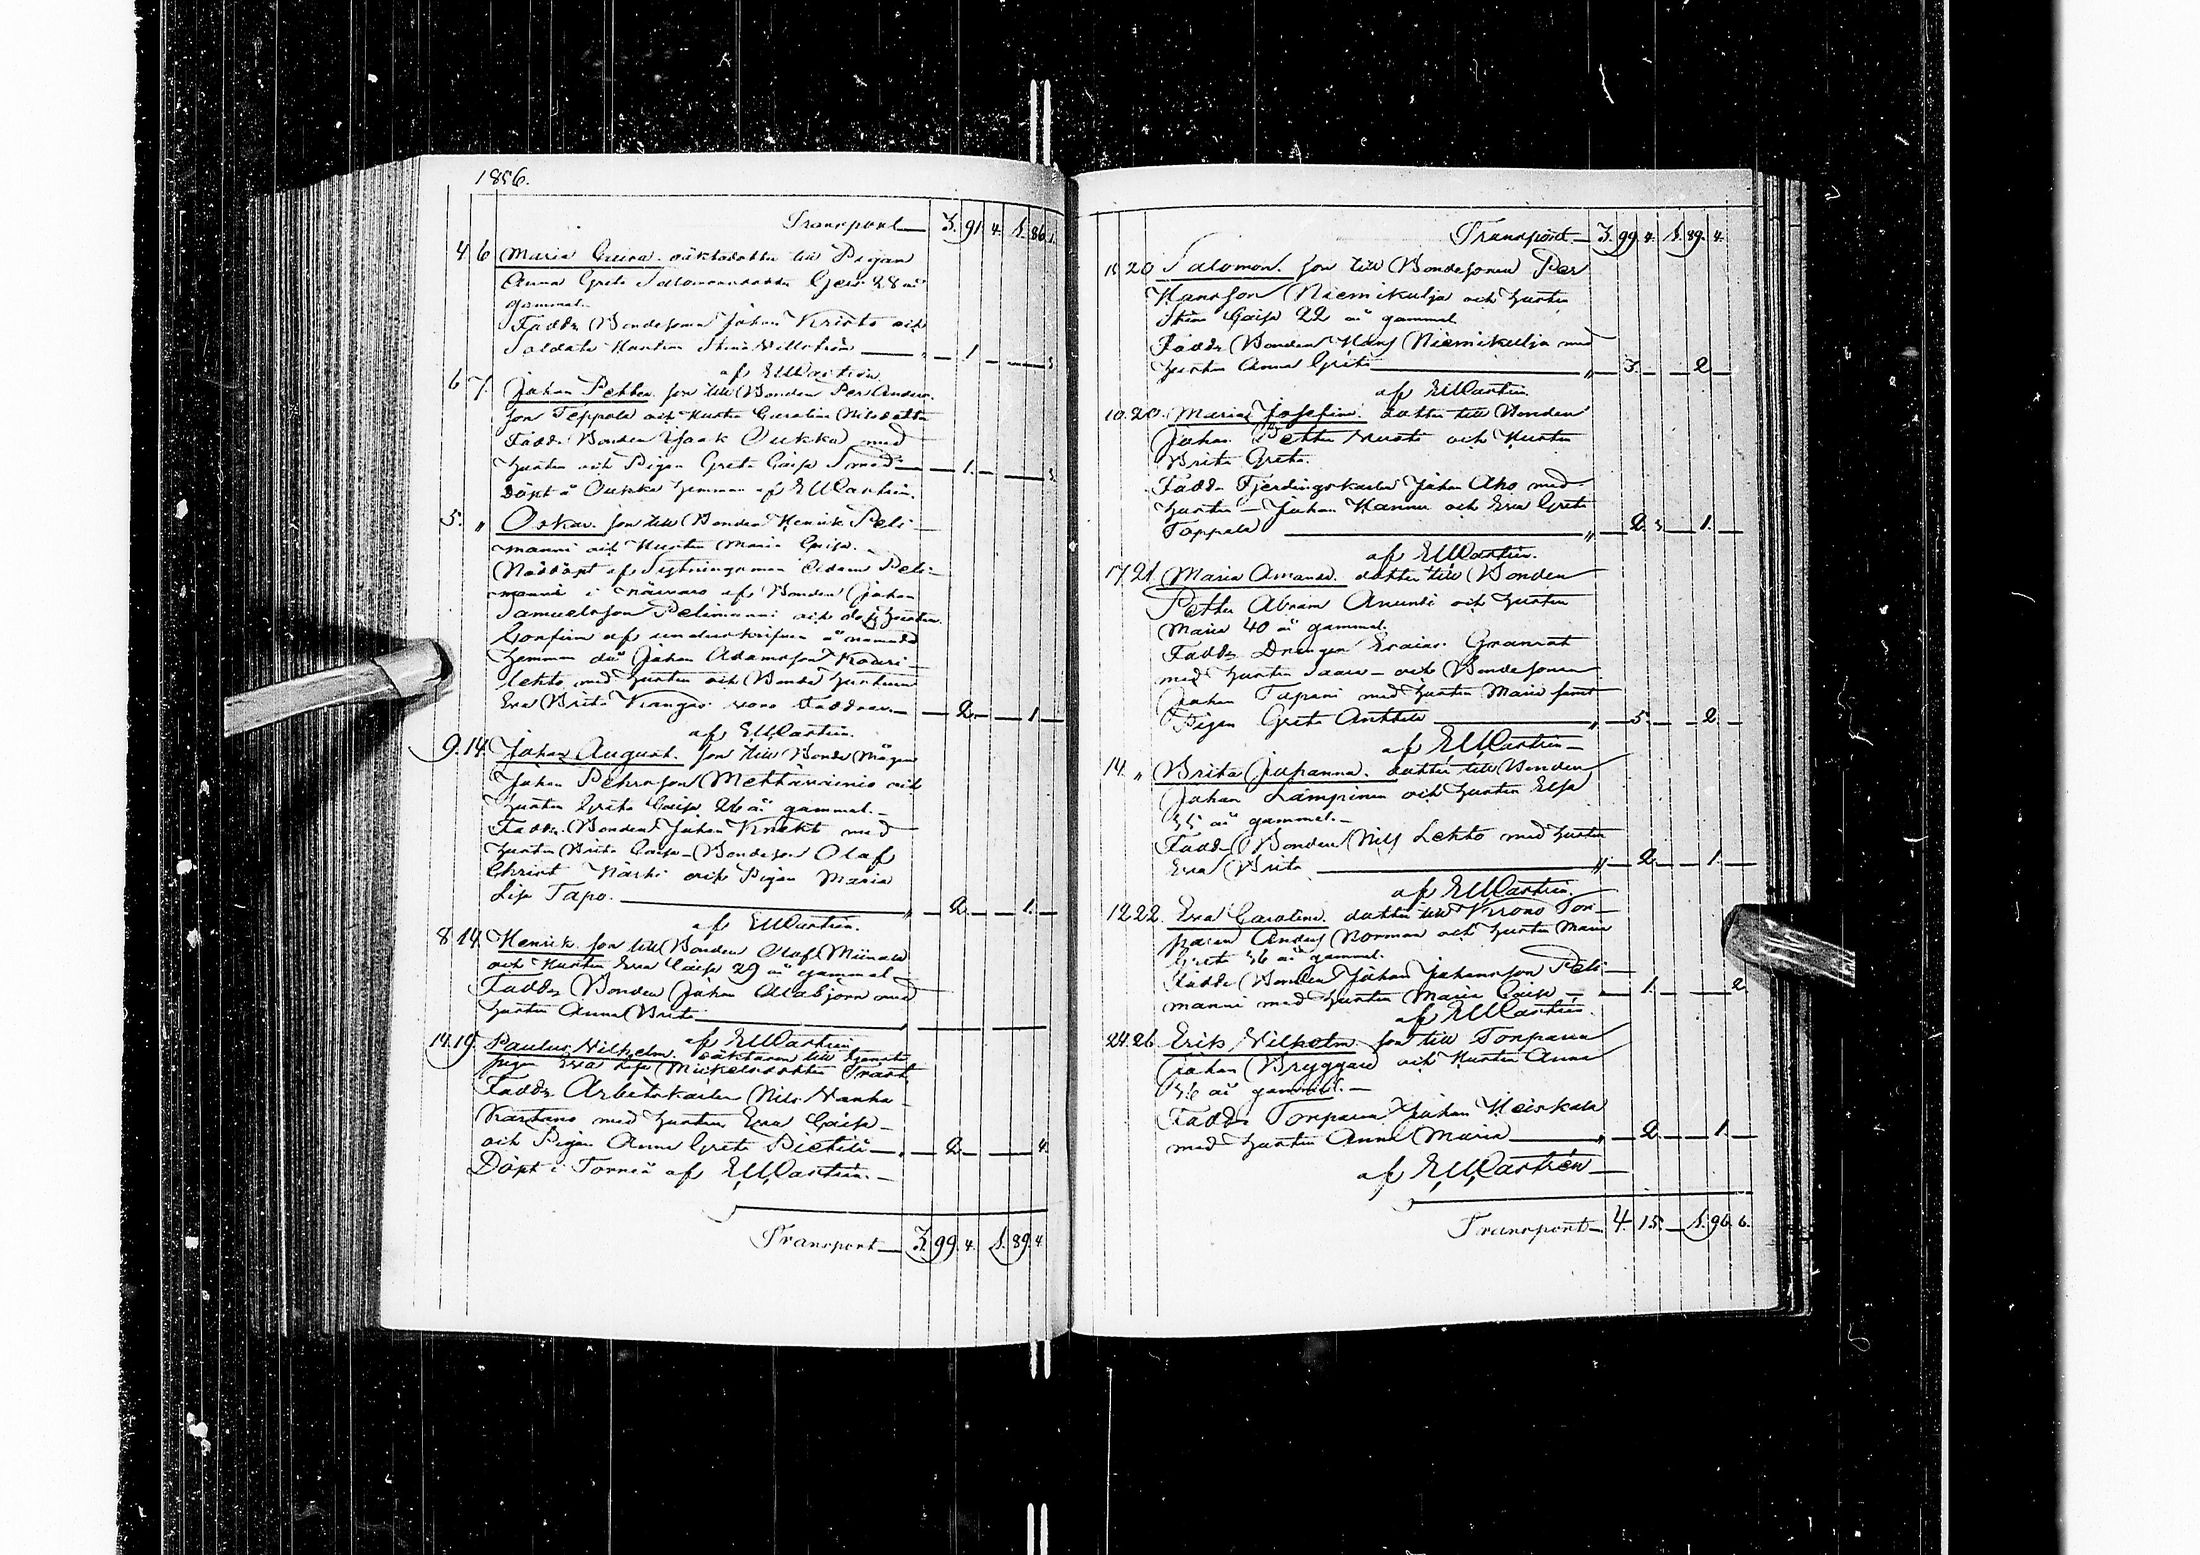 1856.
Transport 3. 91 4. 1. 86 1.
4 6 Maria Lovisa. oäkta dotter till Pigan
Anna Greta Salomonsdotter 28 år
gammal.
Fadd: Bondesonen Johan Kristo och
Soldats Hustrun Stina Millström 1 3
af EWCastrén.
6 7. Johan Petter son till Bonden Per Anders
son Teppola och Hustr Carolina Nilsdotter
Fadd: Bonden Isaak Oukka med
hustru och Pigan Greta Caisa 1. 3
Döpt å Oukka hemman af EWCastrén.
5. " Oskar. son till Bonden Henrik Peli-
manni och Hustru Maria Caisa.
Nöddöpt af Adam Peli-
manni i närvaro af Bonden Johan
Samuelsson Pelimanni och dess hustru.
Confirm af underskrifven å nämnde
hemman då Johan Adamsson Kauri-
lehto med hustru och Bonde hustrun
Eva Brita Kangas voro Faddrar. 2. 1.
af EWCastrén.
9. 14. Johan August. son till Bonde Mågen
Johan Pehrsson Mettävainio och
hustru Greta Caisa 26 år gammal.
Fadd: Bonden Johan Knekt med
hustru Brita Caisa Bondeson Olaf
Christ Närhi och Pigan Maria
Lisa Tapo. " 2. 1.
af EWCastrén.
8. 14. Henrik. son till Bonden Olof Miinala
och Hustru Eva Caisa 29 år gammal
Fadd: Bonden Johan Alabjörn med
hustru Anna Brita
af EWCastrén
14. 19. Paulus Vilhelm. oäkta son till tjenste
pigan Eva Lisa Mickelsdotter
Fadd: Arbetskarlen Nils Vanha-
Kartano med hustru Eva Caisa
och Pigan Anna Greta Pietilä 2. 4.
Döpt i Torneå af EWCastrén.
Transport 3. 99. 4. 1. 89. 4.
Transport 3. 99. 4. 1. 89. 4.
18 20 Salomon. son till Bondesonen Per
Hansson Niemikulja och hustru
Stina Caisa 22 år gammal
Fadd: Bonden Hans Niemikulja med
hustru Anna Greta " 3. 2.
af EWCastrén.
10. 20. Maria Josefina. dotter till Bonden
Johan Petter och Hustru
Brita Greta.
Fadd: Fjerdingskarlen Johan Aho med
hustru Johan Hannu och Eva Greta
Toppola " 2. 3. 1.
af EWCastrén.
17. 21. Maria Amanda. dotter till Bonden
Petter Abram Anundi och hustru
Maria 40 år gammal.
Fadd: Drängen Esaias Granrot
med hustru och Bondesonen
Johan Tapani med hustru Maria samt
Pigan Greta Anttila " 5. 2.
af EWCastrén
14. " Brita Johanna. dotter till Bonden
Johan Lampinen och hustru Elsa
35 år gammal.
Fadd: Bonden Nils Lehto med hustru
Eva Brita " 2. 1.
af EWCastrén.
12. 22. Eva Carolina. dotter till Krono Tor-
paren Anders Norman och hustru Maria
Greta 36 år gammal.
Fadd: Bonden Johan Johansson Peli-
manni med hustru Maria Caisa 1. 2.
af EWCastrén.
24. 26. Erik Vilhelm. son till Torparen
Johan Bryggare och Hustru Anna
36 år gammal.
Fadd: Torparen Johan Heiskala
med hustru Anna Maria " 2. 1.
af EWCastrén
Transport 4. 15. 1. 96. 6.